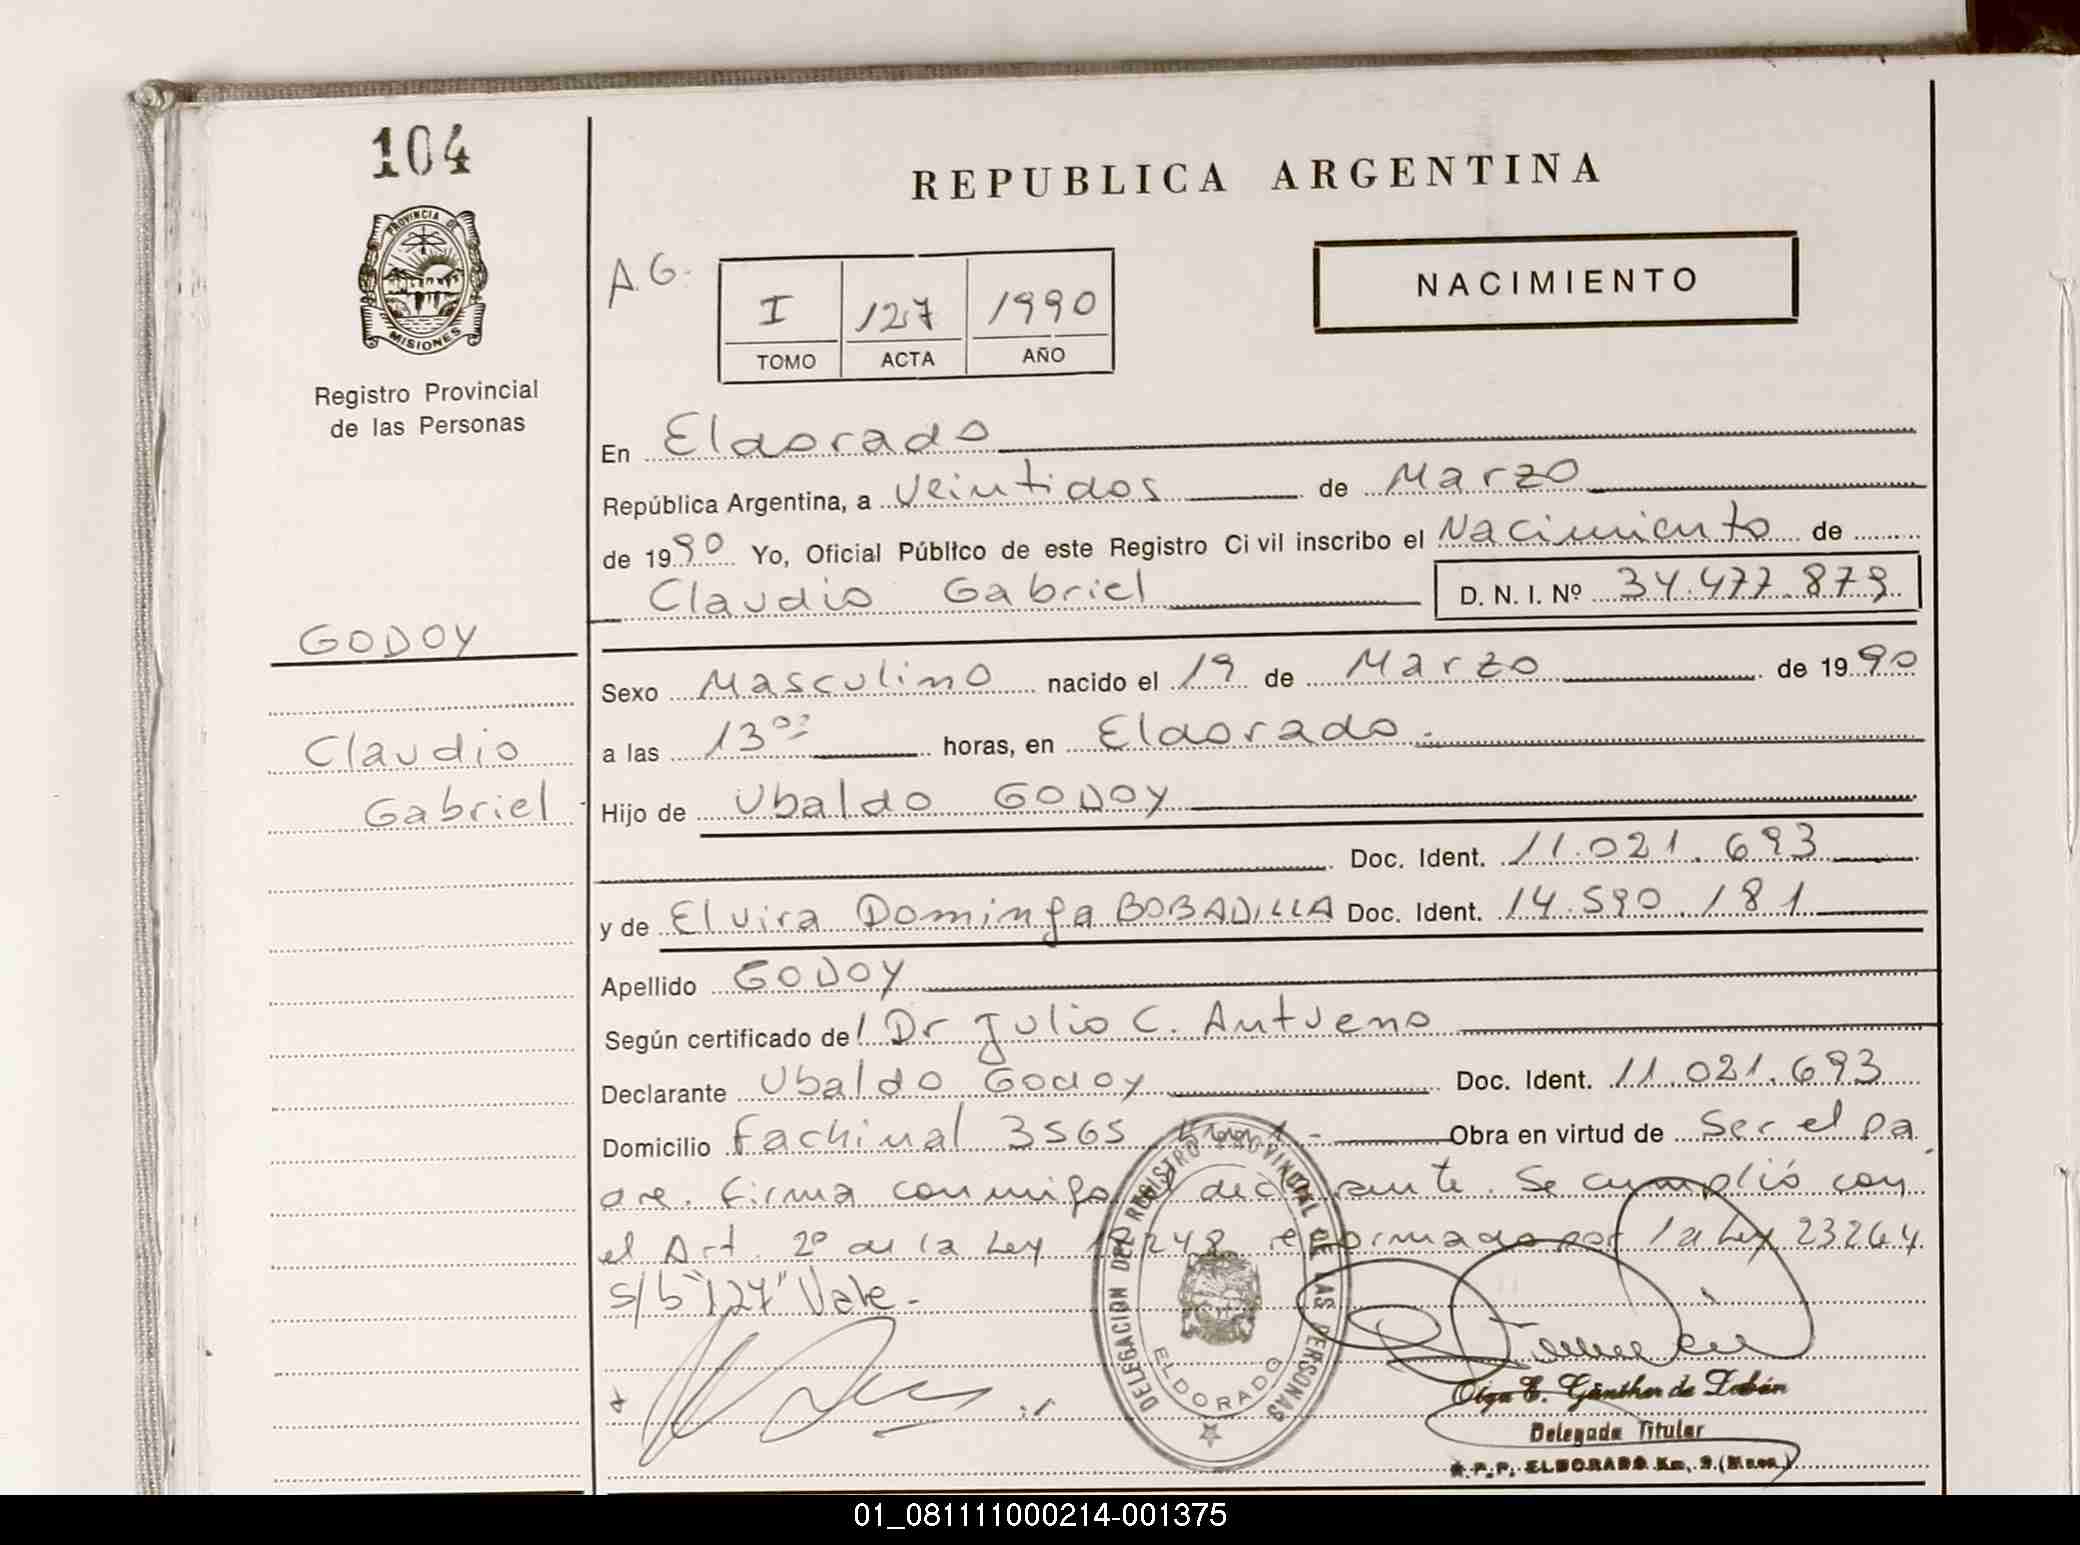 104
PROVINCIA DE
MISIONES
Registro Provincial
de las Personas
REPUBLICA ARGENTINA
A.G.
I 127 1990
TOMO ACTA AÑO
NACIMIENTO
En Eldorado
República Argentina, a veintidos de Marzo
de 1990 Yo, Oficial Público de este Registro Civil inscribo el Nacimiento de
Claudio Gabriel D. N. I. Nº 34.477.879
GODOY
Claudio
Gabriel
Sexo Masculino nacido el 19 de Marzo de 1990
a las 13 horas, en Eldorado.
Hijo de Ubaldo GODOY
Doc. Ident. 11.021.693
y de Elvira Dominga BOBADILLA Doc. Ident. 14.590.181
Apellido GODOY
Según certificado del Dr Julio C. Antueno
Declarante Ubaldo Godoy Doc. Ident. 11.021.693
Domicilio Fachinal 3565 Obra en virtud de ser el pa
dre. Firma conmigo declarante. Se cumplió con
el Art. 2º de la Ley 18248 reformado por la Ley 23264
s/b "127" Vale.-
DELEGACION DEL REGISTRO PROVINCIAL DE LAS PERSONAS
ELDORADO
Olga E. Günther de
Delegada Titular
R.P.P. ELDORADO Km. 9. (Mnes.)
01_081111000214-001375